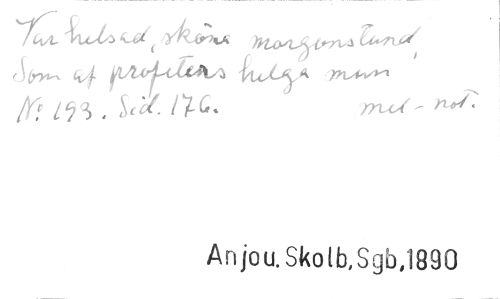 Var helsad, sköna morgonstund,
Som af profeters helga mun
No. 193. Sid. 176. mel-not.
Anjou. Skolb, Sgb, 1890